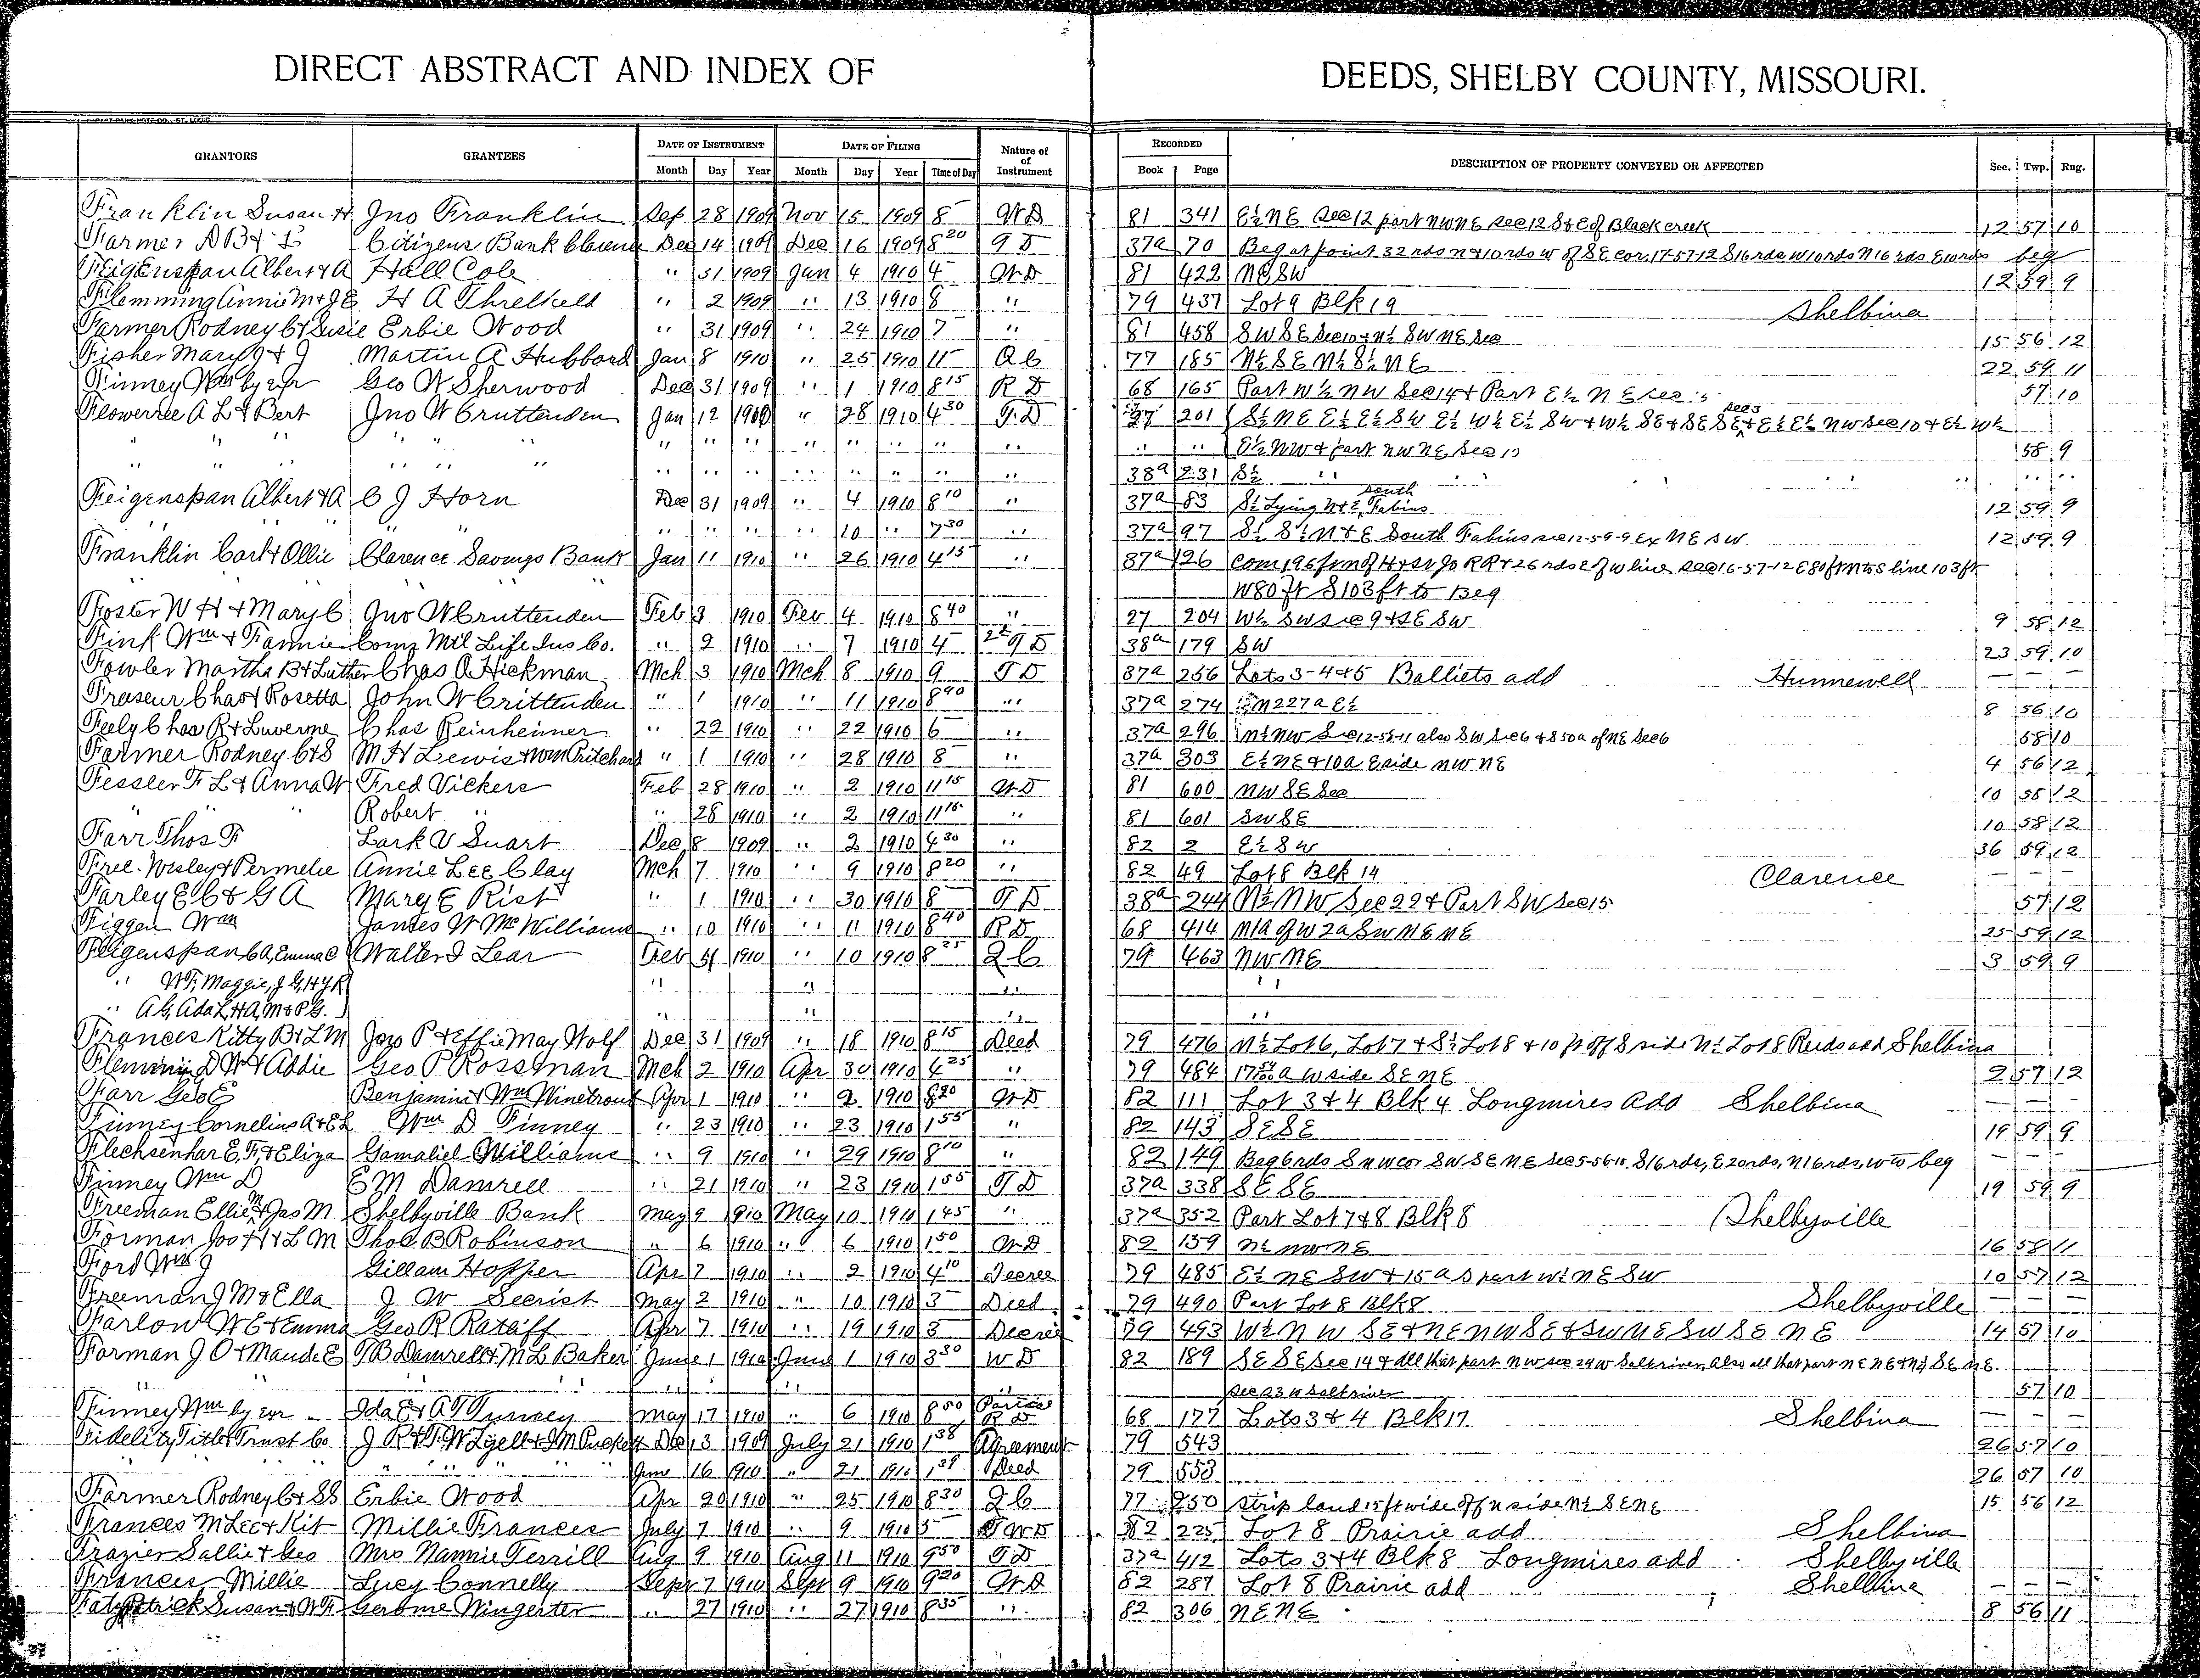 DIRECT ABSTRACT AND INDEX OF DEEDS, SHELBY COUNTY, MISSOURI.
GRANTORS GRANTEES DATE OF INSTRUMENT DATE OF FILING Nature of of Instrument RECORDED DESCRIPTION OF PROPERTY CONVEYED OR AFFECTED Sec. Twp. Rng.
Month Day Year Month Day Year Time of Day Book Page
Franklin Susan H Jno Franklin Sep 28 1909 Nov 15 1909 8 WD 81 341 E½ NE Sec 12 part NWNE Sec 12 S & E of Black creek 12 57 10
Farmer Citizens Bank Dec 14 1909 Dec 16 1909 8 20 TD 37a 70 Beg at point 32 rds N & 10 rds W of SE cor 17-57-12 S 16 rds W 10 rds N 16 rds E 10 rds beg
Feigenspan Albert & A Hall Cole " 31 1909 Jan 4 1910 4 WD 81 422 NE SW 12 59 9
Flemming Annie M & J E H A Threlkeld " 2 1909 " 13 1910 8 " 79 437 Lot 9 Blk 19 Shelbina
Farmer Rodney C & Susie Erbie Wood " 31 1909 " 24 1910 7 " 81 458 SW SE Sec 10 & N½ SW NE Sec 15 56 12
Fisher Mary J & J Martin A Hubbard Jan 8 1910 " 25 1910 11 QC 77 185 N½ SE N½ S½ NE 22 59 11
Finney Wm by exr Geo W Sherwood Dec 31 1909 " 1 1910 8 15 RD 68 165 Part W½ NW Sec 14 & Part E½ NE Sec 15 57 10
Flowerree A L & Bert Jno W Cruttenden Jan 12 " 28 1910 4 30 TD 201 S½ NE E½ E½ SW E½ W½ E½ SW & W½ SE & SE SE Sec 3 & E½ E½ NW Sec 10 & E½ W½
" " " " " " " " " " " " " " " " E½ NW & part NW NE Sec 10 58 9
" " " " " " " " " " " " " 38a 231 S½ " " " " " "
Feigenspan Albert & A C J Horn Dec 31 1909 " 4 1910 8 10 " 37a 83 S½ Lying N & E South Fabius 12 59 9
" " " " " " 10 " 7 30 " 37a 97 S½ S½ N & E South Fabius Sec 12-59-9 Ex NE SW 12 59 9
Franklin Carl & Ollie Clarence Savings Bank Jan 11 1910 " 26 1910 4 15 " 37a 126 Com 196 ft N of H & St Jo RR & 26 rds E of W line Sec 16-57-12 E 80 ft N to S line 103 ft
W 80 ft S 103 ft to Beg
Foster W H & Mary C Jno W Cruttenden Feb 3 1910 Feb 4 1910 8 40 " 27 204 W½ SW Sec 9 & SE SW 9 58 12
Fink Wm & Fannie Conn Mt'l Life Ins Co. " 2 1910 " 7 1910 4 2d TD 38a 179 SW 23 59 10
Fowler Martha B & Luther Chas A Hickman Mch 3 1910 Mch 8 1910 9 TD 37a 256 Lots 3-4 & 5 Balliets add Hunnewell — — —
Fraseur Chas & Rosetta John W Crittenden " 1 1910 " 11 1910 8 40 " 37a 274 N 227 a E½ 8 56 10
Feely Chas R & Luverne Chas Reinheimer " 22 1910 " 22 1910 6 " 37a 296 N½ NW Sec 12-58-11 also SW Sec 6 & S 50a of NE Sec 6 58 10
Farmer Rodney C & S M H Lewis & Wm Pritchard " 1 1910 " 28 1910 8 " 37a 303 E½ NE & 10 a E side NW NE 4 56 12
Fessler F L & Anna W Fred Vickers Feb 28 1910 " 2 1910 11 15 WD 81 600 NW SE Sec 10 58 12
" " " Robert " " 28 1910 " 2 1910 11 15 " 81 601 SW SE 10 58 12
Farr Thos F Lark V Suart Dec 8 1909 " 2 1910 4 30 " 82 2 E½ SW 36 59 12
Free Wesley & Permelie Annie Lee Clay Mch 7 1910 " 9 1910 8 20 " 82 49 Lot 8 Blk 14 Clarence — — —
Farley E C & G A Mary E Rist " 1 1910 " 30 1910 8 TD 38a 244 N½ NW Sec 22 & Part SW Sec 15 57 12
Figgen Wm James W McWilliams " 10 1910 " 11 1910 8 40 RD 68 414 N 1 a of W 2 a SW NE NE 25 59 12
Feigenspan C A, Emma C Walter J Lear Feb 1910 " 10 1910 8 25 QC 79 463 NW NE 3 59 9
" W F, Maggie, J G, H J R " " " "
" A G, Ada L, H A, M & P G. " " " "
Frances Kitty B & L M Jno P & Effie May Wolf Dec 31 1909 " 18 1910 8 15 Deed 79 476 N½ Lot 6, Lot 7 & S½ Lot 8 & 10 ft off S side N½ Lot 8 Reids add Shelbina
Fleming D W & Addie Geo P Rossman Mch 2 1910 Apr 30 1910 4 25 " 79 484 17 a W side SE NE 2 57 12
Farr Geo E Benjamin & Wm Winetrout Apr 1 1910 " 2 1910 8 20 WD 82 111 Lot 3 & 4 Blk 4 Longmires Add Shelbina — — —
Finney Cornelius A & E L Wm D Finney " 23 1910 " 23 1910 1 55 " 82 143 SE SE 19 59 9
Flechsenhar E, F, & Eliza Gamaliel Williams " 9 1910 " 29 1910 8 10 " 82 149 Beg 6 rds S NW cor SW SE NE Sec 5-56-10 S 16 rds, E 20 rds, N 16 rds, W to beg
Finney Wm D E M Damrell " 21 1910 " 23 1910 1 55 TD 37a 338 SE SE 19 59 9
Freeman Ellie M & Jas M Shelbyville Bank May 9 1910 May 10 1910 1 45 " 37a 352 Part Lot 7 & 8 Blk 8 Shelbyville
Forman Jos H & L M Thos B Robinson " 6 1910 " 6 1910 1 50 WD 82 159 N½ NW NE 16 58 11
Ford Wm J Gillam Hopper Apr 7 1910 " 2 1910 4 10 Decree 79 485 E½ NE SW & 15 a S part W½ NE SW 10 57 12
Freeman J M & Ella J W Secrist May 2 1910 " 10 1910 3 Deed 79 490 Part Lot 8 Blk 8 Shelbyville — — —
Farlow W E & Emma Geo R Ratliff Apr 7 1910 " 19 1910 3 Decree 79 493 W½ NW SE & NE NW SE & SW NE SW SE NE 14 57 10
Forman J O & Maude E T B Damrell & M L Baker June 1 1910 June 1 1910 3 30 WD 82 189 SE SE Sec 14 & all that part NW Sec 24 W Salt river, Also all that part NE NE & N½ SE NE
" " " " " " Sec 23 W Salt river 57 10
Finney Wm by exr Ida E & A T Turney May 17 1910 " 6 1910 8 50 Partial RD 68 177 Lots 3 & 4 Blk 17 Shelbina — — —
Fidelity Title & Trust Co J R & T W Lyell & J M Puckett Dec 13 1909 July 21 1910 1 38 Agreement 79 543 26 57 10
" " " " " June 16 1910 " 21 1910 1 39 Deed 79 553 26 57 10
Farmer Rodney C & S S Erbie Wood Apr 20 1910 " 25 1910 8 30 QC 77 250 Strip land 15 ft wide off N side N½ SE NE 15 56 12
Frances M Lee & Kit Millie Frances July 7 1910 " 9 1910 5 WD 82 225 Lot 8 Prairie add Shelbina
Frazier Sallie & Geo Mrs Nannie Terrill Aug 9 1910 Aug 11 1910 9 50 TD 37a 412 Lots 3 & 4 Blk 8 Longmires add Shelbyville
Frances Millie Lucy Connelly Sept 7 1910 Sept 9 1910 9 20 WD 82 287 Lot 8 Prairie add Shelbina — — —
Fatzpatrick Susan & W F Gerome Wingerter " 27 1910 " 27 1910 8 35 " 82 306 NE NE 8 56 11